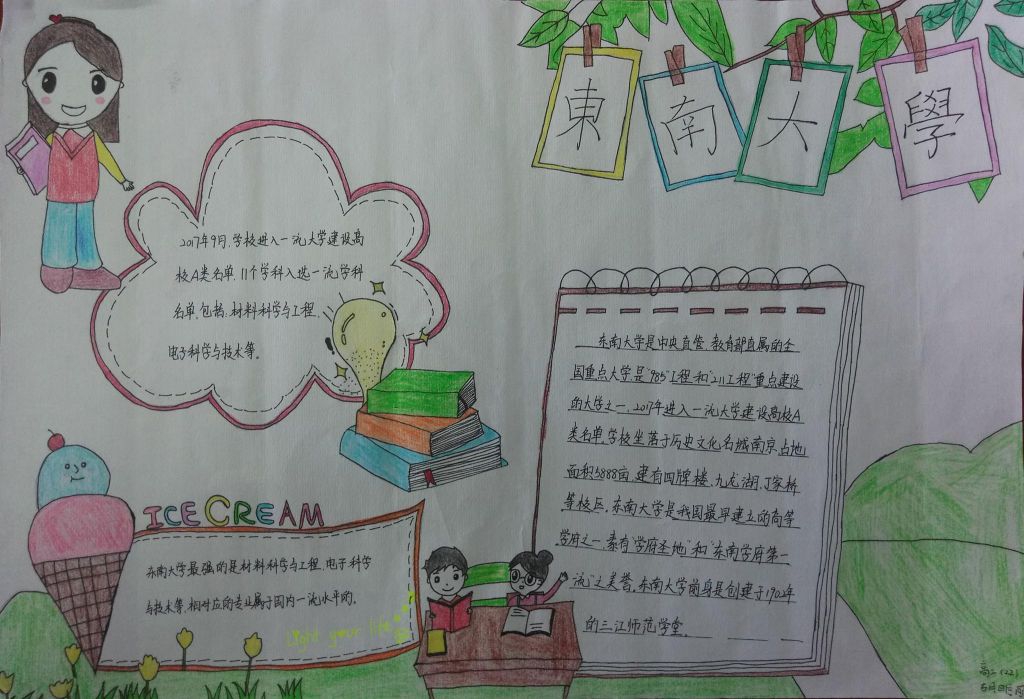 東南大學
2017年9月,学校进入一流大学建设高
校A类名单,11个学科入选一流学科
名单,包括:材料科学与工程,
电子科学与技术等。
东南大学是中央直管、教育部直属的全
国重点大学,是"985"工程和"211工程"重点建设
的大学之一,2017年进入一流大学建设高校A
类名单,学校坐落于历史文化名城南京,占地
面积5888亩,建有四牌楼、九龙湖、丁家桥
等校区,东南大学是我国最早建立的高等
学府之一,素有"学府圣地"和"东南学府第一
流"之美誉,东南大学前身是创建于1902年
的三江师范学堂。
ICE CREAM
东南大学最强的是材料科学与工程、电子科学
与技术等,相对应的专业属于国内一流水平的。
Light your life
高二(22)